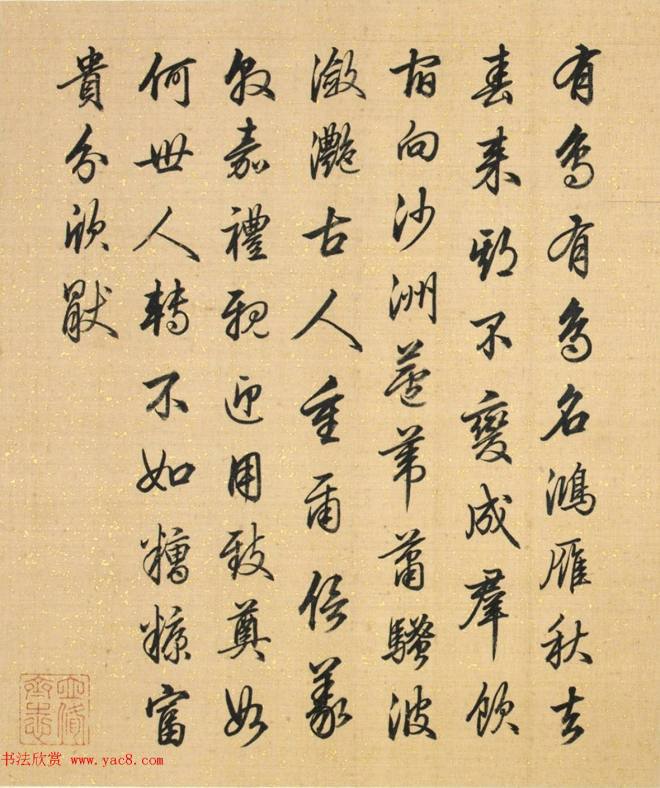 有鳥有鳥名鴻雁秋去
春來期不變成羣飲
宿向沙洲蘆葦蕭騷波
瀲灧古人重爾信義
敦嘉禮親迎用致奠如
何世人轉不如糟糠富
貴分欣厭
书法欣赏 www.yac8.com